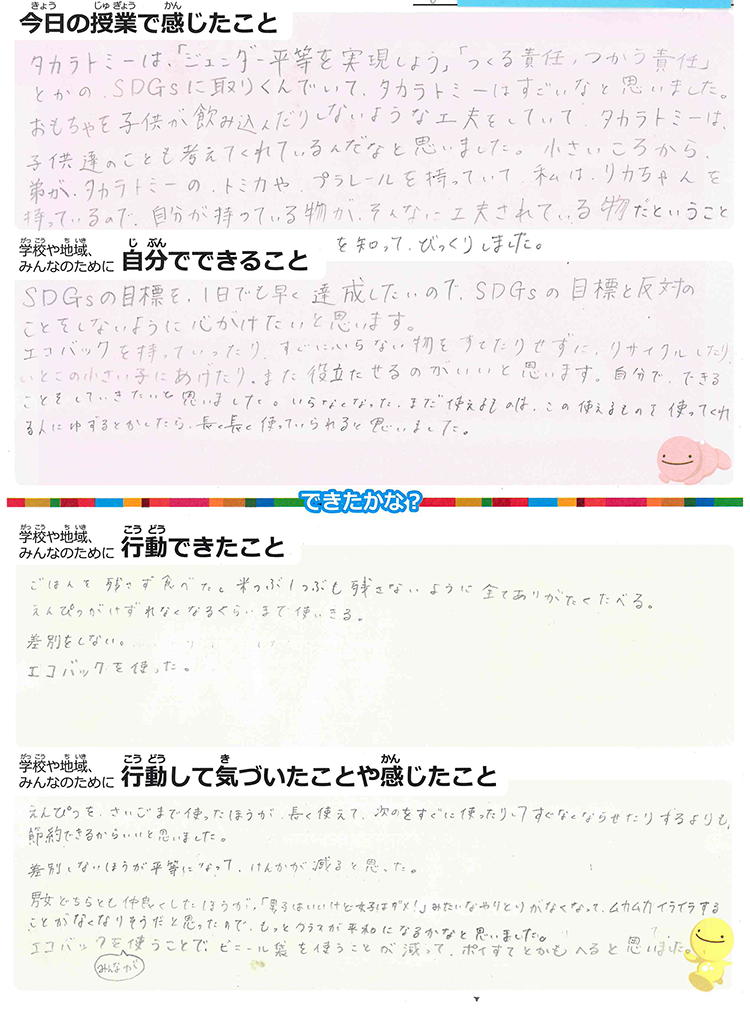 今日の授業で感じたこと
タカラトミーは、「ジェンダー平等を実現しよう」「つくる責任,つかう責任」
とかの、SDGsに取りくんでいて、タカラトミーはすごいなと思いました。
おもちゃを子供が飲み込んだりしないような工夫をしていて、タカラトミーは、
子供達のことも考えてくれているんだなと思いました。小さいころから、
弟が、タカラトミーの、トミカや、プラレールを持っていて、私は、リカちゃんを
持っているので、自分が持っている物が、そんなに工夫されている物だということ
を知って、びっくりしました。
学校や地域、
みんなのために 自分でできること
SDGsの目標を、1日でも早く達成したいので、SDGsの目標と反対の
ことをしないように心がけたいと思います。
エコバックを持っていったり、すぐにいらない物をすてたりせずに、リサイクルしたり、
いとこの小さい子にあげたり、また役立たせるのがいいと思います。自分で、できる
ことをしていきたいと思いました。いらなくなった、まだ使えるものは、この使えるものを使ってくれ
る人にゆずるとかしたら、長く長く使っていられると思いました。
できたかな?
学校や地域、
みんなのために 行動できたこと
ごはんを残さず食べた。米つぶ1つぶも残さないように全てありがたくたべる。
えんぴつがけずれなくなるくらいまで使いきる。
差別をしない。
エコバックを使った。
学校や地域、
みんなのために 行動して気づいたことや感じたこと
えんぴつを、さいごまで使ったほうが、長く使えて、次のをすぐに使ったりしてすぐなくならせたりするよりも、
節約できるからいいと思いました。
差別しないほうが平等になって、けんかが減ると思った。
男女どちらとも仲良くしたほうが、「男子はいいけど女子はダメ!」みたいなやりとりがなくなって、ムカムカイライラする
ことがなくなりそうだと思ったので、もっとクラスが平和になるかなと思いました。
エコバックを使うことで、ビニール袋を使うことが減って、ポイすてとかもへると思いました。
みんなが